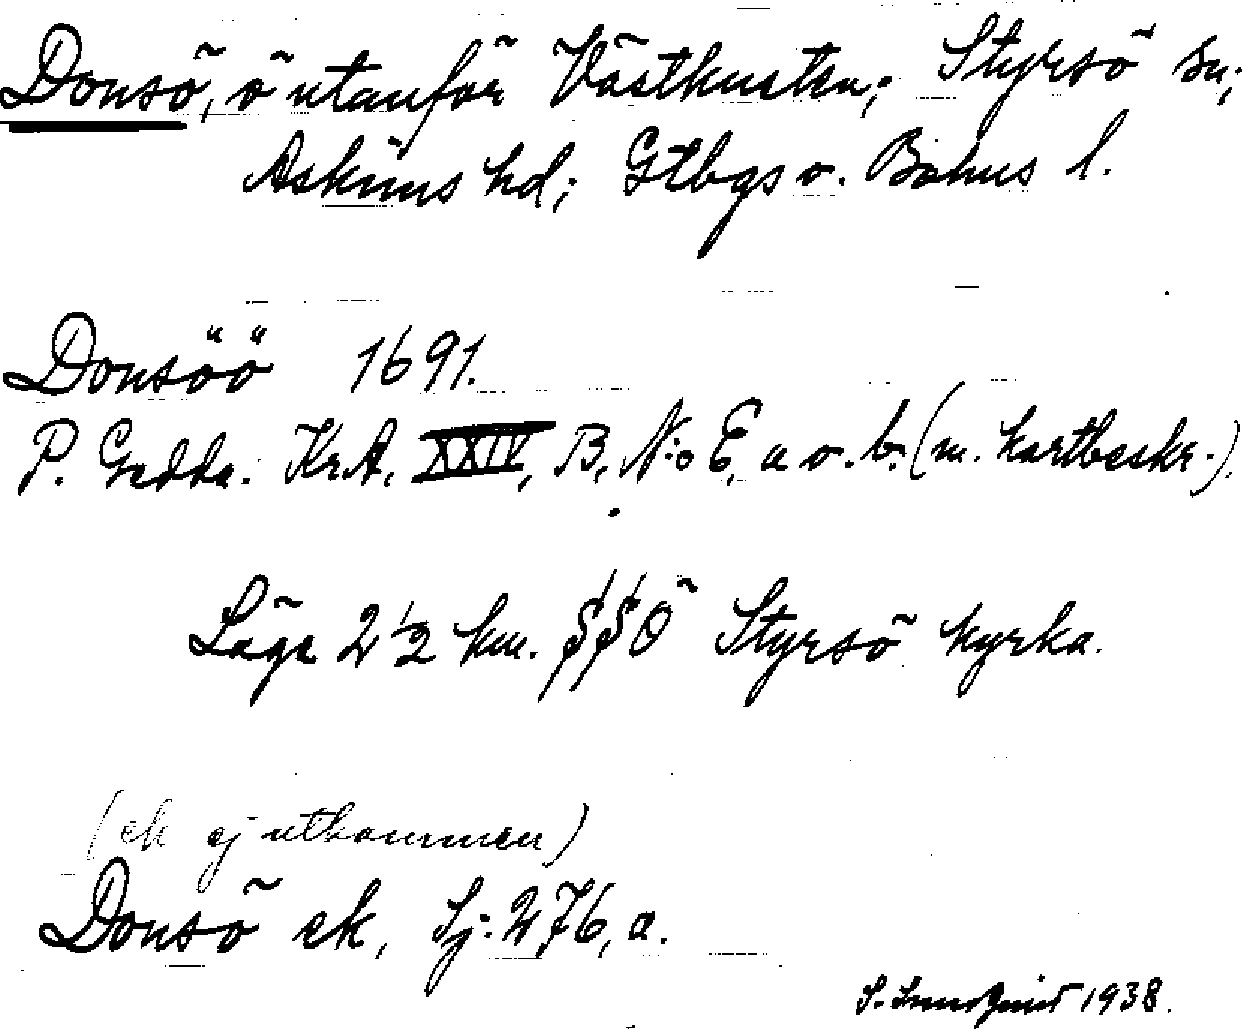 Donsö, ö utanför Västkusten; Styrsö sn;
Askims hd; Gtbgs o. Bohus l.
Donsöö 1691.
P. Gedda. Kr.A. XXIV, B, N:o E, a o. b. (m. kartbeskr.).
Läge 2 1/2 km. SSÖ Styrsö kyrka.
(ek ej utkommen)
Donsö ek, Sj. 276, a.
S. Lundquist 1938.